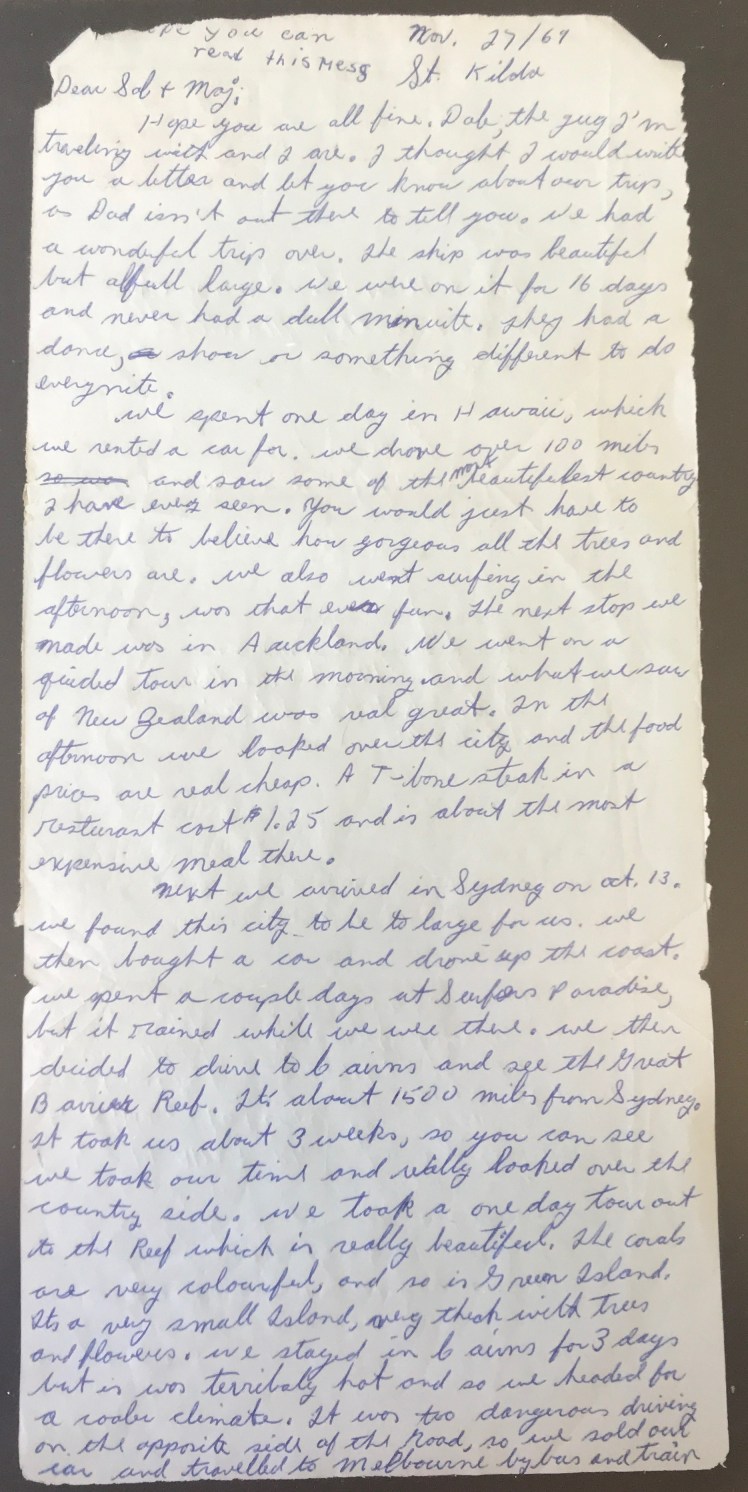 you can Nov. 27/69
read this Mess St. Kilda
Dear Sol + Maj;
Hope you are all fine. Dale, the guy I'm
traveling with and I are. I thought I would write
you a letter and let you know about our trip,
as Dad isn't out there to tell you. We had
a wonderful trip over. The ship was beautiful
but alfull large. We were on it for 16 days
and never had a dull minuite. They had a
dance, show or something different to do
everynite.
We spent one day in Hawaii, which
we rented a car for. We drove over 100 miles
so we and saw some of the most beautifulest country
I have ever seen. You would just have to
be there to believe how gorgeous all the trees and
flowers are. We also went surfing in the
afternoon, was that ever fun. The next stop we
made was in Auckland. We went on a
guided tour in the morning and what we saw
of New Zealand was real great. In the
afternoon we looked over the city and the food
prices are real cheap. A T-bone steak in a
resturant cost $1.25 and is about the most
expensive meal there.
Next we arrived in Sydney on oct. 13.
We found this city to be to large for us. We
then bought a car and drove up the coast.
We spent a couple days at Surfers Paradise,
but it rained while we were there. We then
decided to drive to Cairns and see the Great
Barrier Reef. It's about 1500 miles from Sydney.
It took us about 3 weeks, so you can see
we took our time and really looked over the
country side. We took a one day tour out
to the Reef which is really beautiful. The corals
are very colourful, and so is Green Island.
Its a very small Island, very thick with trees
and flowers. We stayed in Cairns for 3 days
but is was terribaly hot and so we headed for
a cooler climate. It was too dangerous driving
on the opposite side of the Road, so we sold our
car and travelled to Melbourne by bus and train